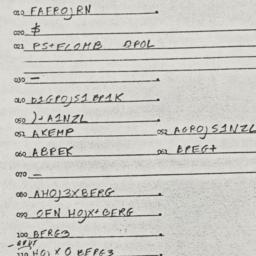 010 FAFPOJRN
020 $
021 PS+FLOMB DPOL
030 —
040 D1GPOJS1 BP1K
050 )+A1NZL
051 AKEMP 052 AGPOJS1NZL
060 ABPEK 061 BPEG+
070 —
080 AHOJ3XBERG
090 OFN HOJX+BERG
100 BFRG3
110 HOJ X O BFRG3